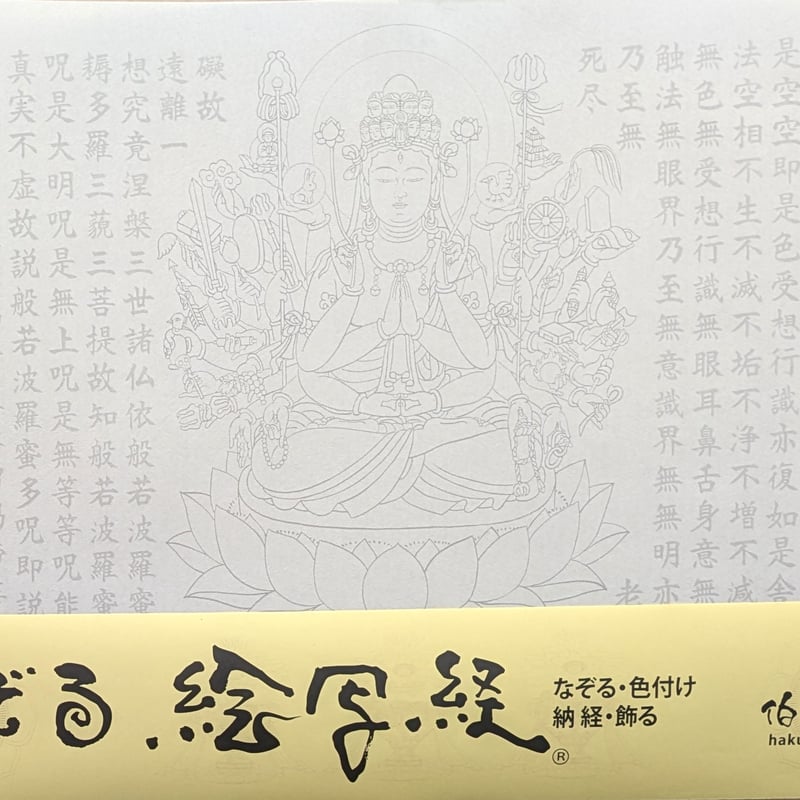 是空空即是色受想行識亦復如是舎
法空相不生不滅不垢不浄不増不減
無色無受想行識無眼耳鼻舌身意無
触法無眼界乃至無意識界無無明亦
乃至無 老
死尽
礙故
遠離一
想究竟涅槃三世諸仏依般若波羅蜜
耨多羅三藐三菩提故知般若波羅蜜
呪是大明呪是無上呪是無等等呪能
真実不虚故説般若波羅蜜多呪即説
ぞる・絵写経®
なぞる・色付け
納経・飾る
伯
haku